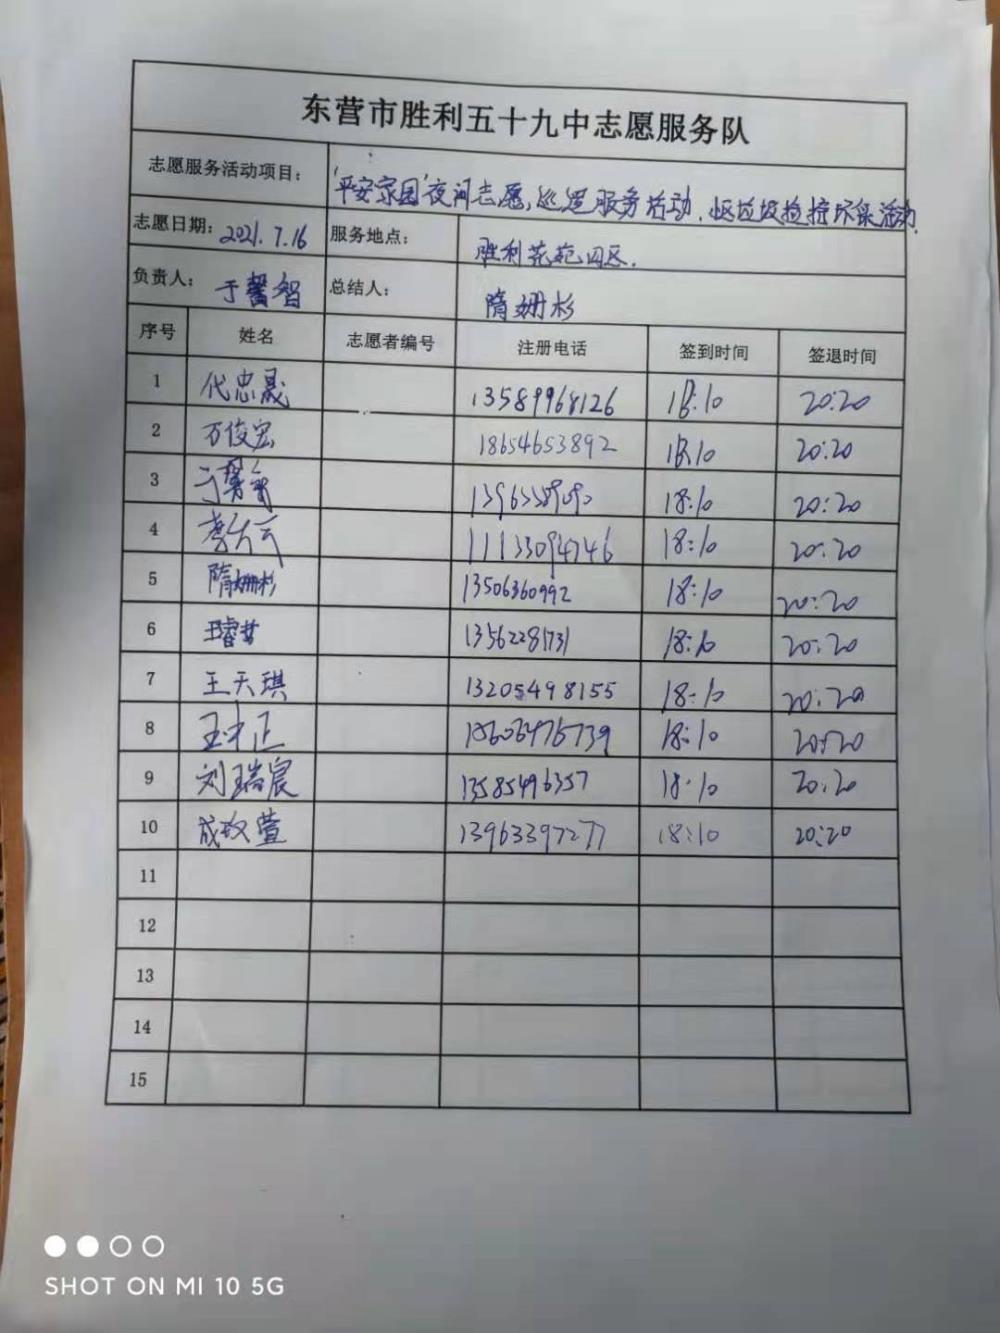 东营市胜利五十九中志愿服务队
志愿服务活动项目： "平安家园"夜间志愿，巡逻服务活动，垃圾捡拾环保活动.
志愿日期： 2021.7.16 服务地点： 胜利花苑四区.
负责人： 于馨智 总结人： 隋姗杉
序号 姓名 志愿者编号 注册电话 签到时间 签退时间
1 代忠晟 13589968126 18:10 20:20
2 万俊宏 18654653892 18:10 20:20
3 于馨智 18:10 20:20
4 11133094746 18:10 20:20
5 隋姗杉 13506360992 18:10 20:20
6 13562281731 18:10 20:20
7 王天琪 13205498155 18:10 20:20
8 王中正 18:10 20:20
9 刘瑞宸 13585496357 18:10 20:20
10 成玫萱 13963397277 18:10 20:20
11
12
13
14
15
SHOT ON MI 10 5G